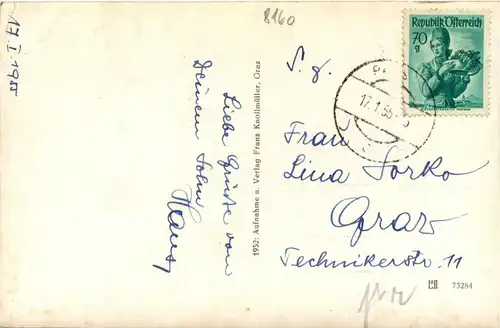 8160
17. I. 1955
Liebe Grüsse von
Deinem Sohn
Hans
1952: Aufnahme u. Verlag Franz Knollmüller, Graz
Republik Österreich
70
g
17.1.55
S. g.
Frau
Lina Sorko
Graz
Technikerstr. 11
73284